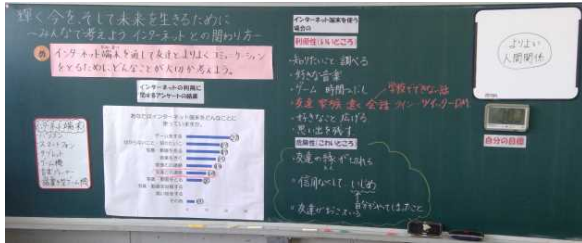 輝く今を、そして未来を生きるために
~みんなで考えよう インターネットとの関わり方~
め
インターネット端末を通して友達とよりよくコミュニケーション
をとるためにどんなことが大切か考えよう。
インターネットの利用に
関するアンケートの結果
あなたはインターネット端末をどんなことに
使っていますか。
インターネット端末
パソコン
スマートフォン
タブレット
ゲーム機
音楽プレーヤー
インターネット端末を使う
場合の
利便性(いいところ)
・知りたいこと 調べる
・好きな音楽
・ゲーム 時間つぶし
学校でできない話
・友達 家族 遠く 会話 ライン ツイッター DM
・好きなこと 広げる
・思い出を残す
危険性(こわいところ)
・友達の縁がきれる
・信用なくして いじめ
・友達がおこっている
よりよい
人間関係
自分の目標